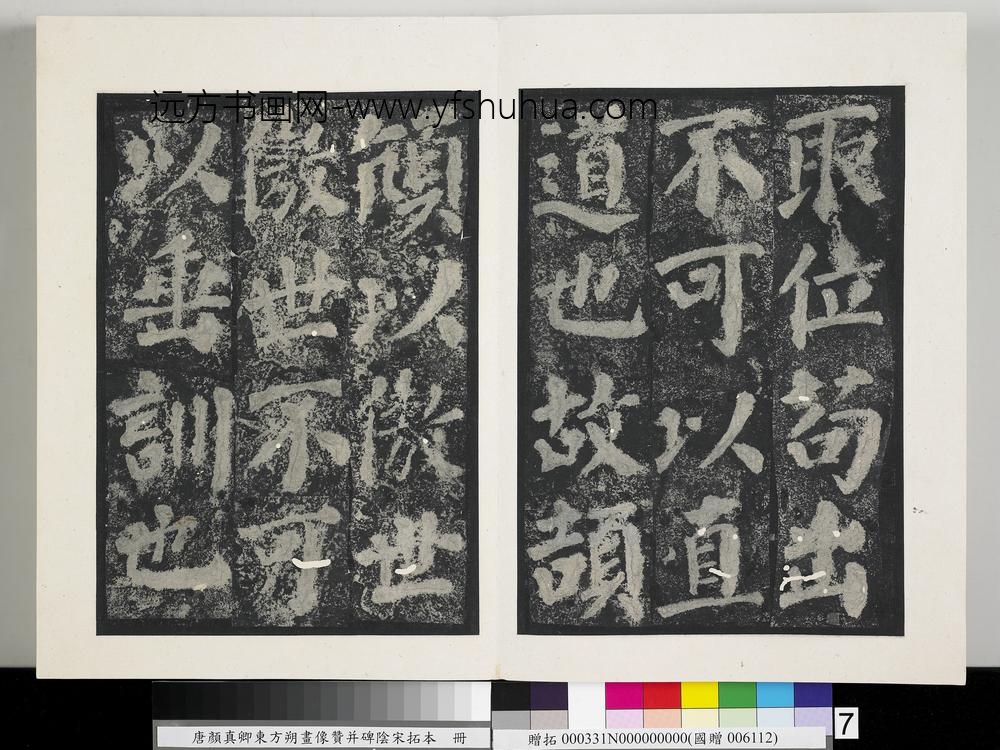 远方书画网-www.yfshuhua.com
取位苟出
不可以直
道也故頡
頏以傲世
傲世不可
以垂訓也
唐顏真卿東方朔畫像贊并碑陰宋拓本 冊
贈拓 000331N000000000(國贈 006112)
7